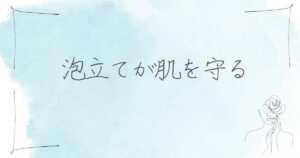 泡立てが肌を守る